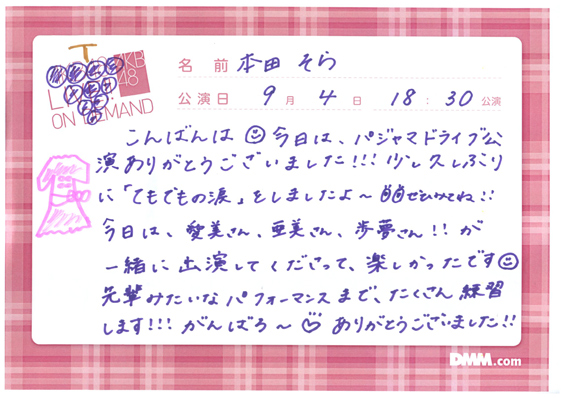 名前 本田 そら
公演日 9月 4日 18:30公演
KB48
ON DEMAND
こんばんは 今日は、パジャマドライブ公
演ありがとうございました!!! 少し久しぶり
に「てもでもの涙」をしましたよ〜 ぜひみてね!!
今日は、愛美さん、亜美さん、歩夢さん!! が
一緒に出演してくださって、楽しかったです
先輩みたいなパフォーマンスまで、たくさん練習
します!!! がんばろ〜♡ ありがとうございました!!
DMM.com